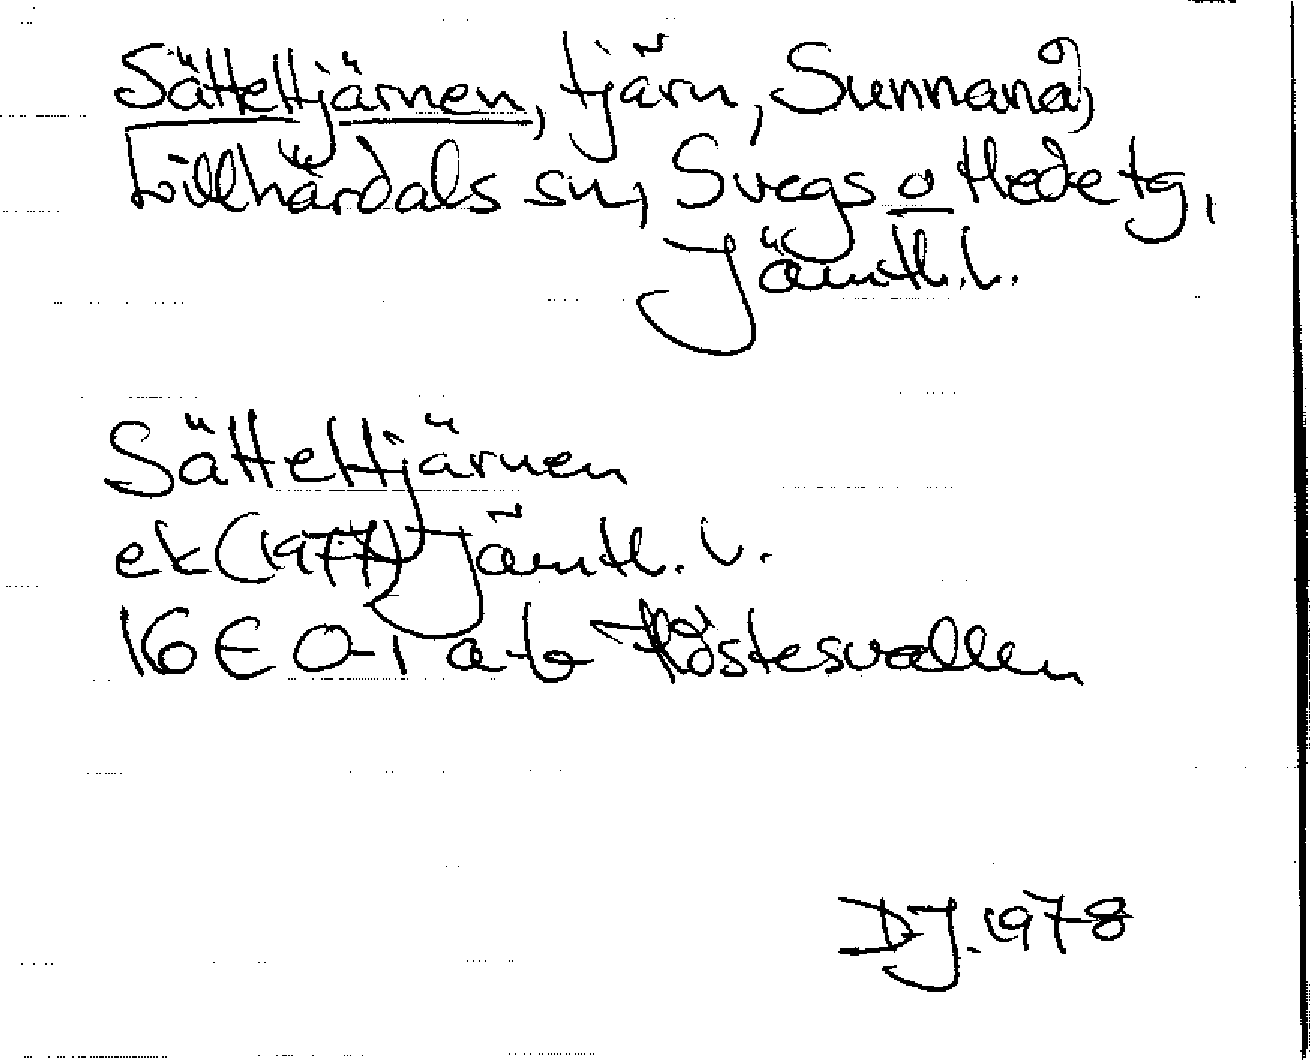 Sätteltjärnen, tjärn, Sunnanå,
Lillhärdals sn, Svegs o Hede tg,
Jämtl.l.
Sätteltjärnen
ek (1977) Jämtl. l.
16 E 0-1 a-b Höstesvallen
DJ. 1978